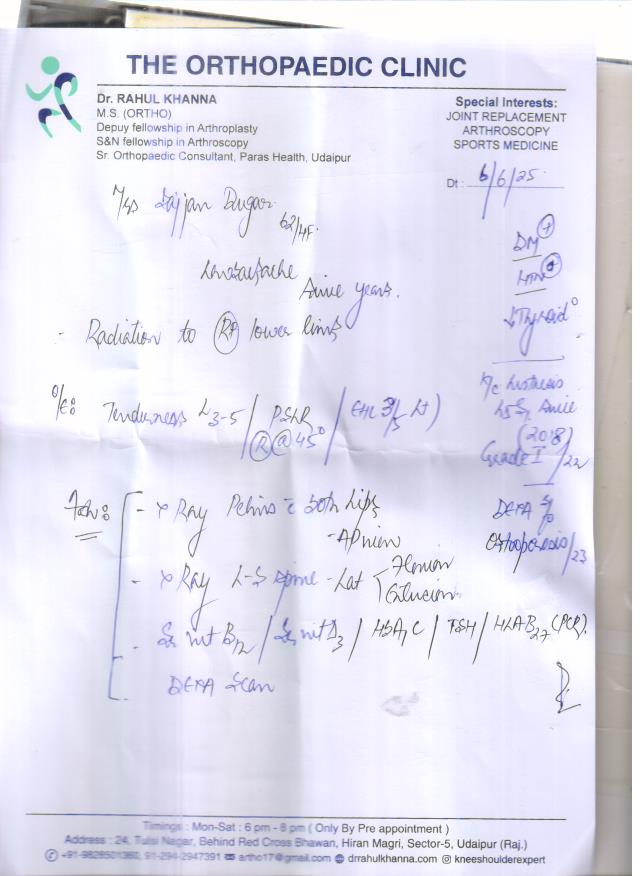 THE ORTHOPAEDIC CLINIC
Dr. RAHUL KHANNA
M.S. (ORTHO)
Depuy fellowship in Arthroplasty
S&N fellowship in Arthroscopy
Sr. Orthopaedic Consultant, Paras Health, Udaipur
Special Interests:
JOINT REPLACEMENT
ARTHROSCOPY
SPORTS MEDICINE
Dt : 6/6/25
Dugar
62/4F
DM +
HTN +
Thyroid
years.
- Radiation to Rt lower limb
O/E: Tenderness L3-5 / PSLR R @ 45° / EHL 3/5 Lt)
L5 S1
(2018)
Grade I /22
DEXA
Osteoporosis/23
Adv:
- X Ray Pelvis c both hips
- AP view
- X Ray L-S Spine - Lat
- Sr Vit B12 / Sr Vit D3 / HbA1C / TSH / HLA B27 (PCR).
DEXA Scan
Timings : Mon-Sat : 6 pm - 8 pm ( Only By Pre appointment )
Address : 24, Tulsi Nagar, Behind Red Cross Bhawan, Hiran Magri, Sector-5, Udaipur (Raj.)
91-294-2947391 artho17@gmail.com drrahulkhanna.com kneeshoulderexpert